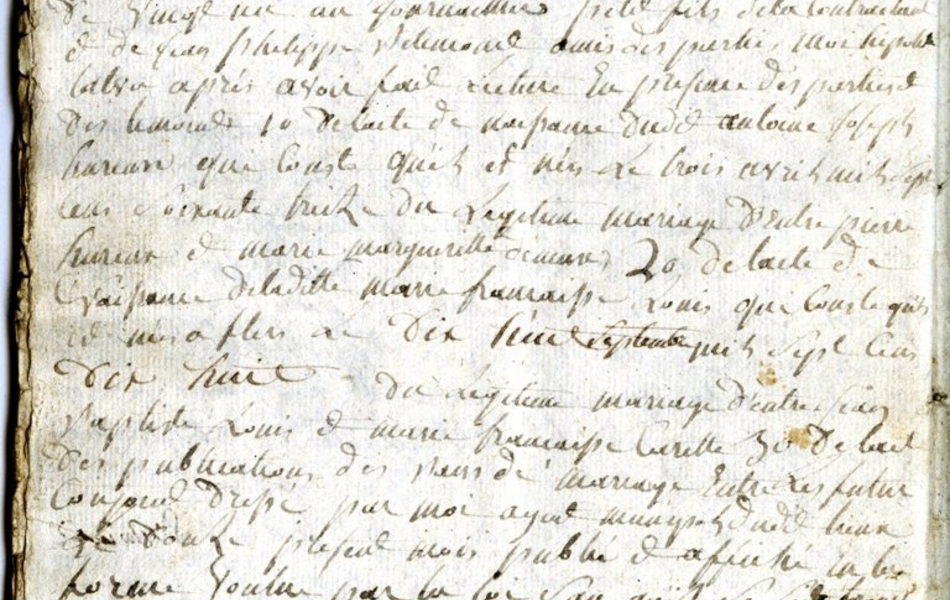 de vingt un an journaillier petit fils de la contractant
et de jean philippe amis des parties moi
après avoir fait lecture En presence des parties et
Des temoins 1o De lacte de naissance dudt antoine joseph
hureau que Conste quil est né Le trois avril mil sept
Cens Soixante treize du Legitime mariage D'Entre pierre
hureau et marie margueritte 2o de lacte de
Naissance Deladitte marie francaisse Louis qui Conste quil
est née a flers Le Dix huit Septembre mil Sept Cens
Dix huit du Legitime mariage d'entre jean
Baptiste Louis et marie francaisse Carette 3o De lact
Des publications des de mariage Entre Les futur
Conjoint Dressé par moi agent dudt lieux
Le Douze présent mois publié et affiché en la
forme voulue par la loi